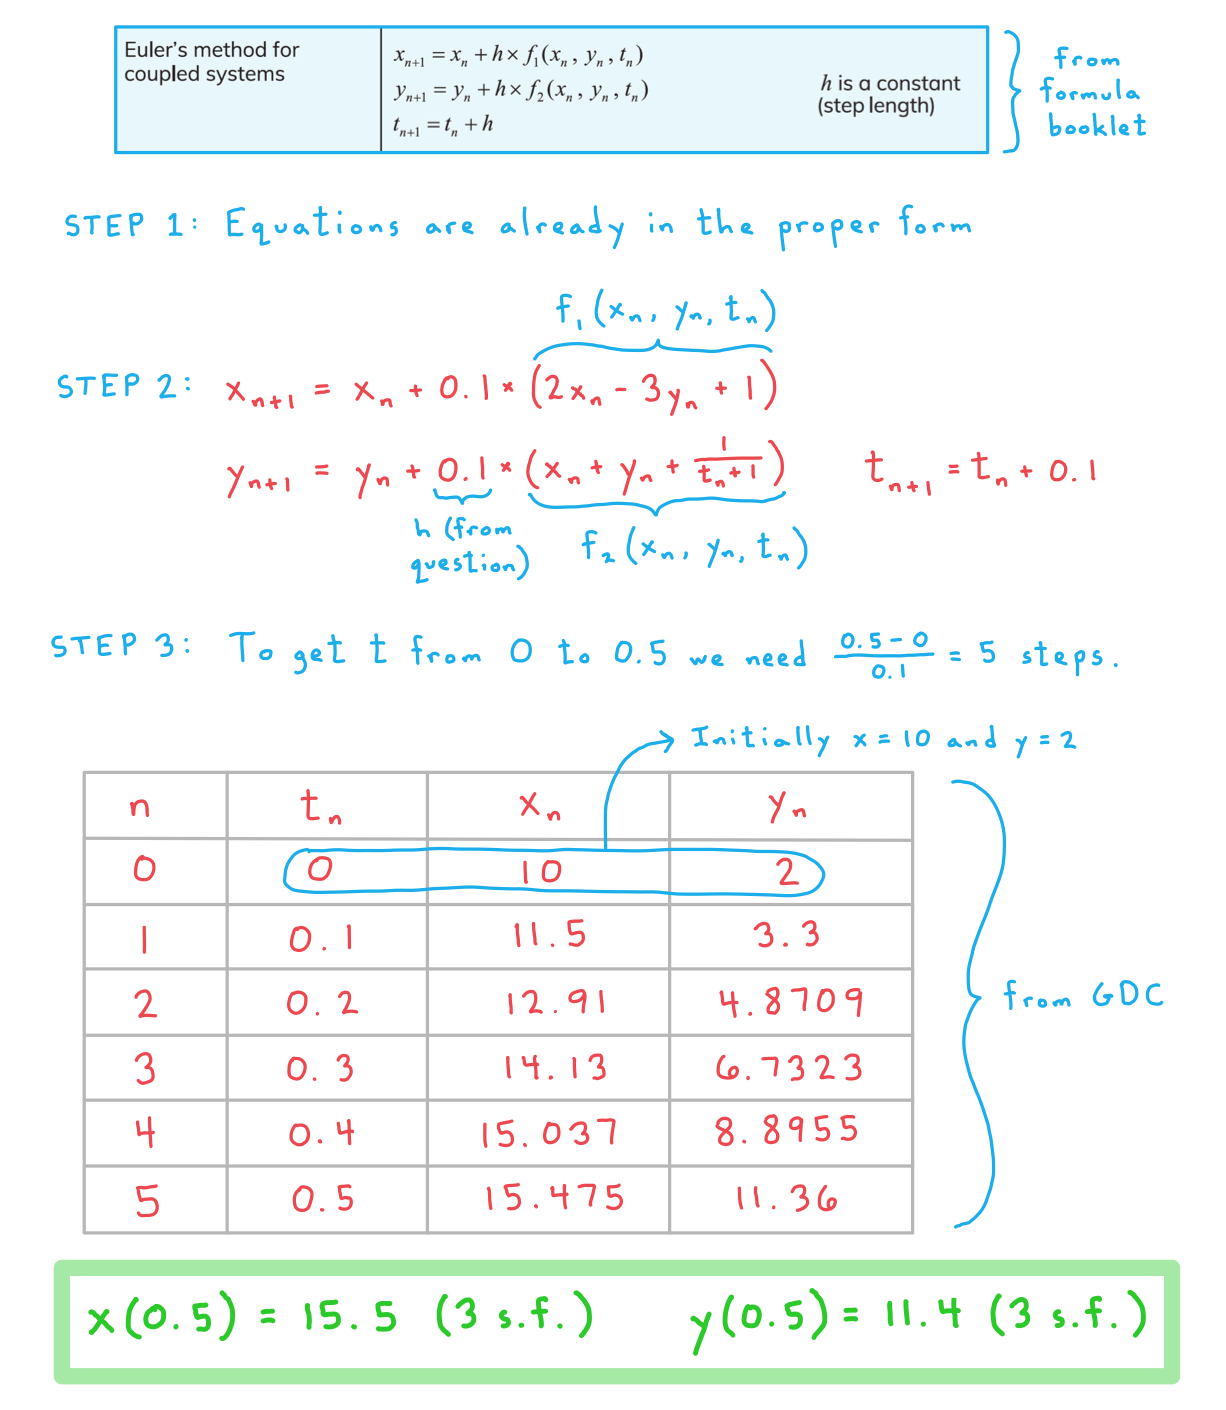 Euler's method for
coupled systems
xₙ₊₁ = xₙ + h × f₁(xₙ, yₙ, tₙ)
yₙ₊₁ = yₙ + h × f₂(xₙ, yₙ, tₙ)
tₙ₊₁ = tₙ + h
h is a constant
(step length)
from
formula
booklet
STEP 1: Equations are already in the proper form
f₁(xₙ, yₙ, tₙ)
STEP 2: xₙ₊₁ = xₙ + 0.1 × (2xₙ - 3yₙ + 1)
yₙ₊₁ = yₙ + 0.1 × (xₙ + yₙ + 1/(tₙ+1)) tₙ₊₁ = tₙ + 0.1
h (from
question)
f₂(xₙ, yₙ, tₙ)
STEP 3: To get t from 0 to 0.5 we need (0.5 - 0)/0.1 = 5 steps.
Initially x = 10 and y = 2
n tₙ xₙ yₙ
0 0 10 2
1 0.1 11.5 3.3
2 0.2 12.91 4.8709
3 0.3 14.13 6.7323
4 0.4 15.037 8.8955
5 0.5 15.475 11.36
from GDC
x(0.5) = 15.5 (3 s.f.) y(0.5) = 11.4 (3 s.f.)